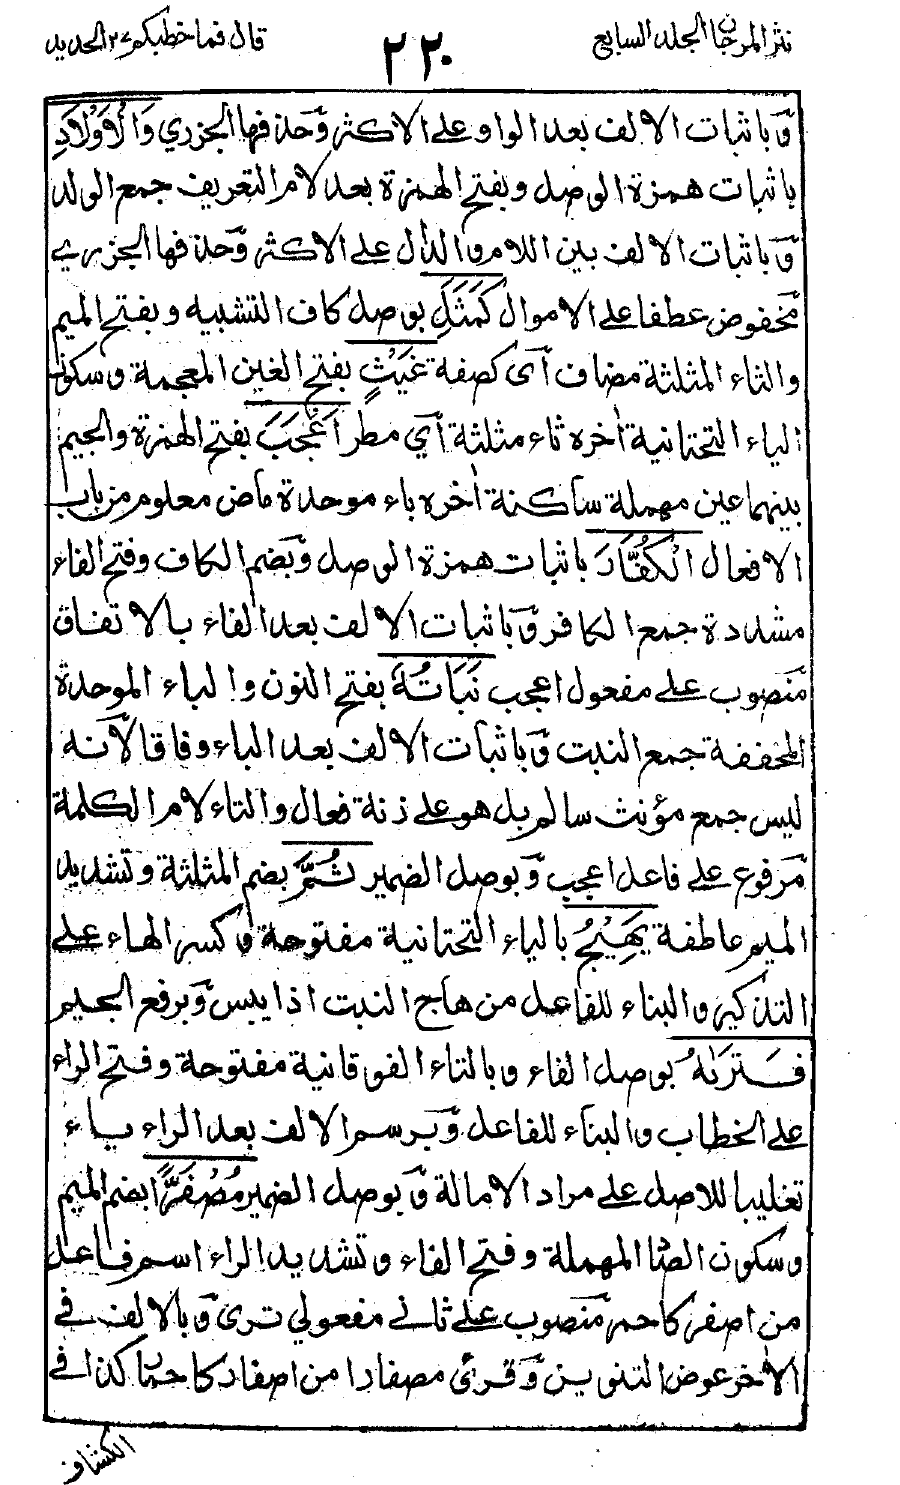 نثر المرجان المجلد السابع
٢٢٠
قال فما خطبكم ٢٧ الحديد
وباثبات الالف بعد الواو على الاكثر وحذفها الجزري وَالْاَوْلَادِ
باثبات همزة الوصل وبفتح الهمزة بعد لام التعريف جمع الولد
وباثبات الالف بين اللام والدال على الاكثر وحذفها الجزري
مخفوض عطفا على الاموال كَمَثَلِ بوصل كاف التشبيه وبفتح الميم
والثاء المثلثة مضاف اى كصفة غَيْثٍ بفتح الغين المعجمة وسكون
الياء التحتانية اخره ثاء مثلثة اي مطر اَعْجَبَ بفتح الهمزة والجيم
بينهما عين مهملة ساكنة اخره باء موحدة ماض معلوم من باب
الافعال الْكُفَّارَ باثبات همزة الوصل وبضم الكاف وفتح الفاء
مشددة جمع الكافر وباثبات الالف بعد الفاء بالاتفاق
منصوب على مفعول اعجب نَبَاتُهٗ بفتح النون والباء الموحدة
المخففة جمع النبت وباثبات الالف بعد الباء وفاقا لانه
ليس جمع مؤنث سالم بل هو على زنة فعال والتاء لام الكلمة
مرفوع على فاعل اعجب وبوصل الضمير ثُمَّ بضم المثلثة وتشديد
الميم عاطفة يَهِيْجُ بالياء التحتانية مفتوحة وكسر الهاء على
التذكير والبناء للفاعل من هاج النبت اذا يبس وبرفع الجيم
فَتَرٰىهُ بوصل الفاء وبالتاء الفوقانية مفتوحة وفتح الراء
على الخطاب والبناء للفاعل وبرسم الالف بعد الراء ياء
تغليبا للاصل على مراد الامالة وبوصل الضمير مُصْفَرًّا بضم الميم
وسكون الصاد المهملة وفتح الفاء وتشديد الراء اسم فاعل
من اصفر كاحمر منصوب على ثاني مفعولي ترى وبالالف في
الاخر عوض التنوين وقرئ مصفارا من اصفار كاحمار كذا في
الكشاف